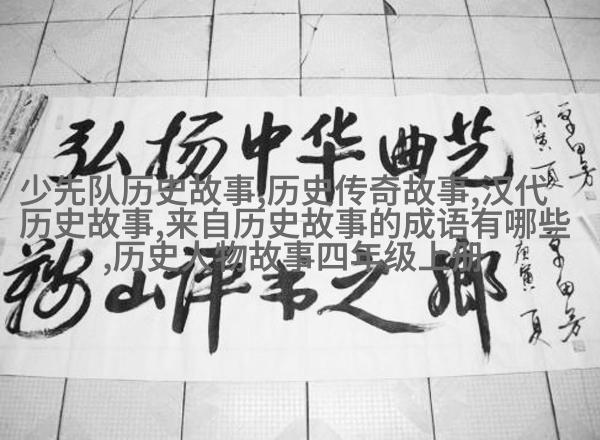 弘扬中华曲艺
单田芳
庚寅 夏
少先队历史故事,历史传奇故事,汉代
历史故事,来自历史故事的成语有哪些
,历史人物故事四年级上册
鞍山评书之鄉
单田芳
庚寅 夏